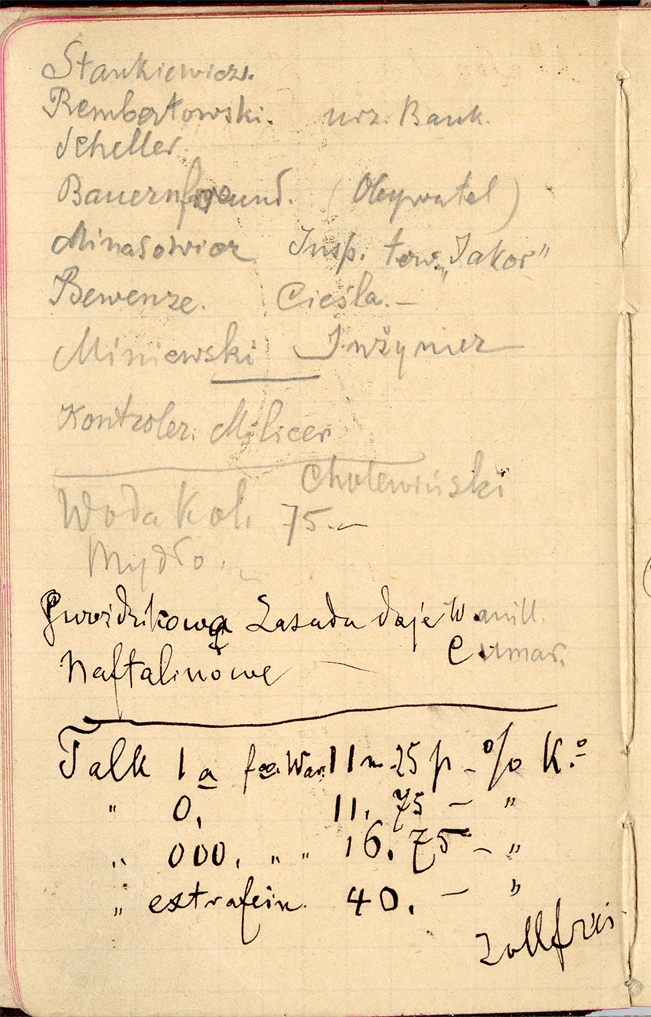 Stankiewicz.
Rembertowski. urz. Bank.
Scheller.
Bauernfreund. (Obywatel)
Minasowicz Insp. tow. „Jakor”
Bewenze. Cieśla.—
Miniewski Inżynier
Kontroler. Milicer
Cholewiński
Woda Kol. 75.—
Mydło.
Zasada daje Wanill.
Cumar.
Naftalinowe —
Talk 1a fco. War. 11 m. 25 p — % K.º
" 0, 11,75 — "
" 000. " " 16.75 — "
" extrafein. 40. — "
Zollfrei